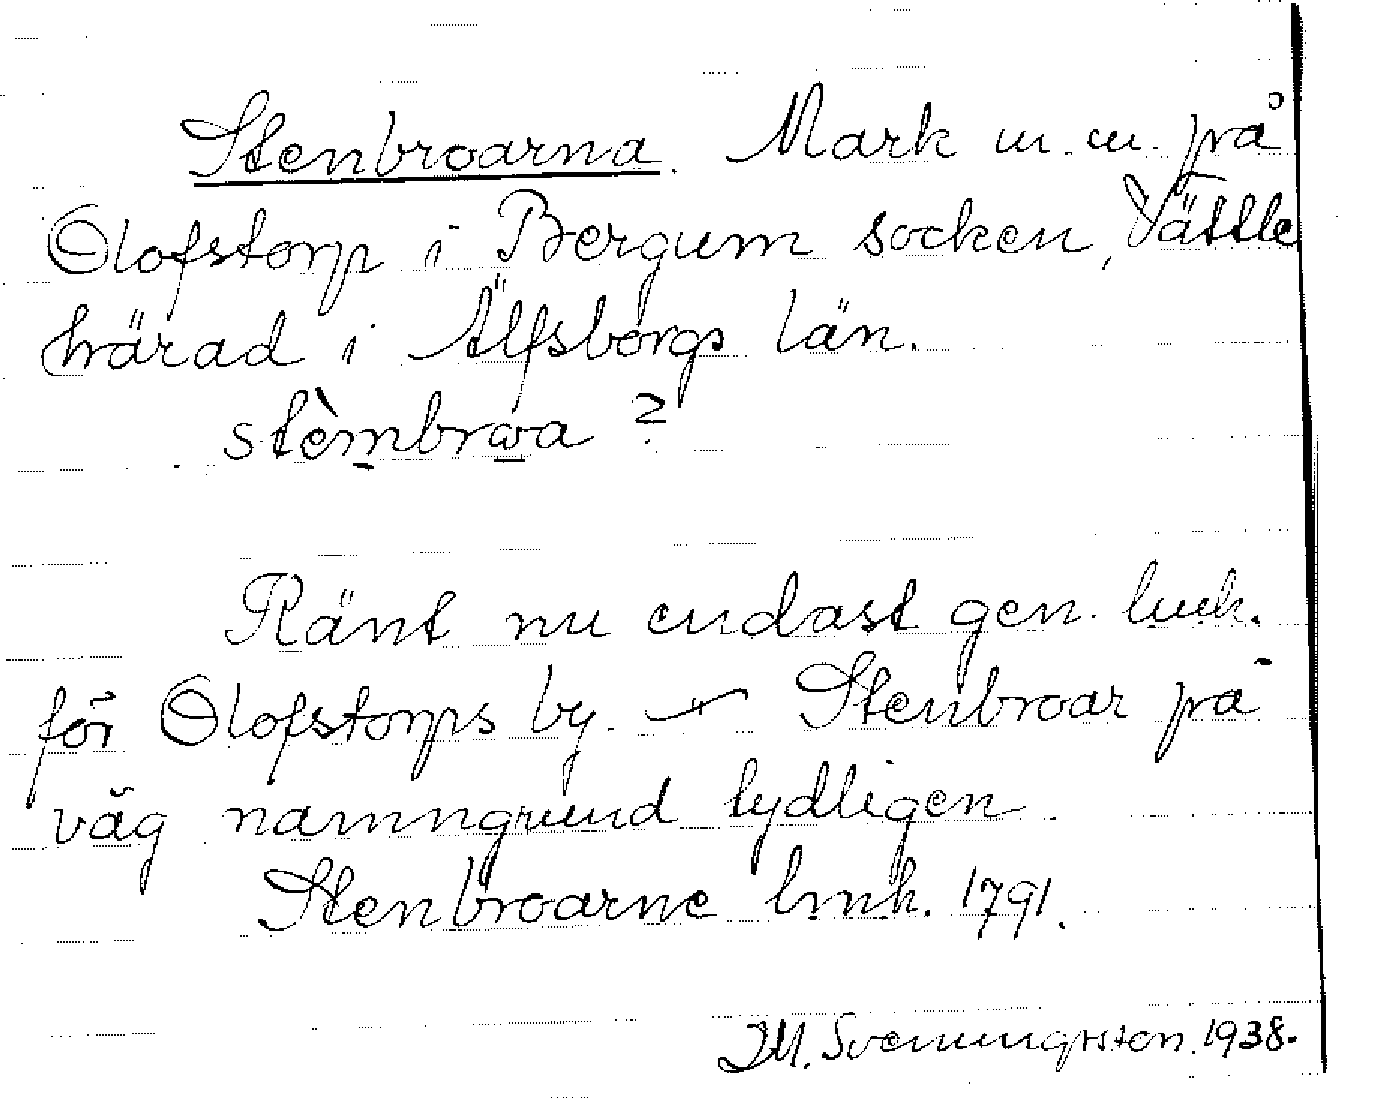 Stenbroarna. Mark m.m. på
Olofstorp i Bergum socken, Vättle
härad i Älfsborgs län.
stèmbrωa ?
Känt nu endast gen. lmk.
för Olofstorps by. — Stenbroar på
väg namngrund tydligen
Stenbroarne lmk. 1791.
J.M. Svenningsson. 1938.